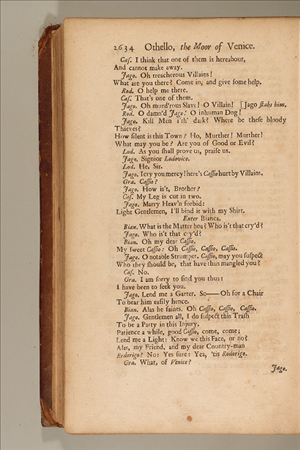 2634 Othello, the Moor of Venice.
Cas. I think that one of them is hereabout,
And cannot make away.
Jago. Oh treacherous Villains!
What are you there? Come in, and give some help.
Rod. O help me there.
Cas. That's one of them.
Jago. Oh murd'rous Slave! O Villain! [Jago stabs him.
Rod. O damn'd Jago! O inhuman Dog!
Jago. Kill Men i'th' dark? Where be these bloody
Thieves?
How silent is this Town? Ho, Murther! Murther!
What may you be? Are you of Good or Evil?
Lod. As you shall prove us, praise us.
Jago. Signior Lodovico.
Lod. He, Sir.
Jago. I cry you mercy; here's Cassio hurt by Villains.
Gra. Cassio?
Jago. How is't, Brother?
Cas. My Leg is cut in two.
Jago. Marry Heav'n forbid:
Light Gentlemen, I'll bind it with my Shirt.
Enter Bianca.
Bian. What is the Matter hoa? Who is't that cry'd?
Jago. Who is't that cry'd?
Bian. Oh my dear Cassio,
My sweet Cassio: Oh Cassio, Cassio, Cassio.
Jago. O notable Strumpet, Cassio, may you suspect
Who they should be, that have thus mangled you?
Cas. No.
Gra. I am sorry to find you thus:
I have been to seek you.
Jago. Lend me a Garter. So—— Oh for a Chair
To bear him easily hence.
Bian. Alas he faints. Oh Cassio, Cassio, Cassio.
Jago. Gentlemen all, I do suspect this Trash
To be a Party in this Injury.
Patience a while, good Cassio, come, come;
Lend me a Light: Know we this Face, or no?
Alas, my Friend, and my dear Country-man
Rodorigo? No: Yes sure: Yes, 'tis Rodorigo.
Gra. What, of Venice?
Jago.